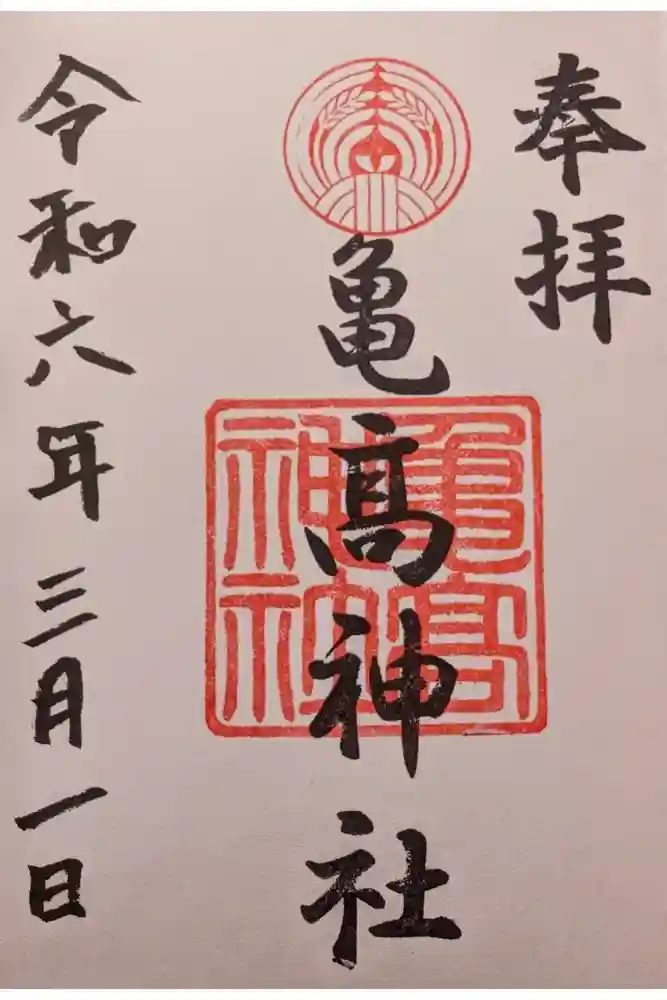 奉拝
亀高神社
亀高
神社
令和六年三月一日